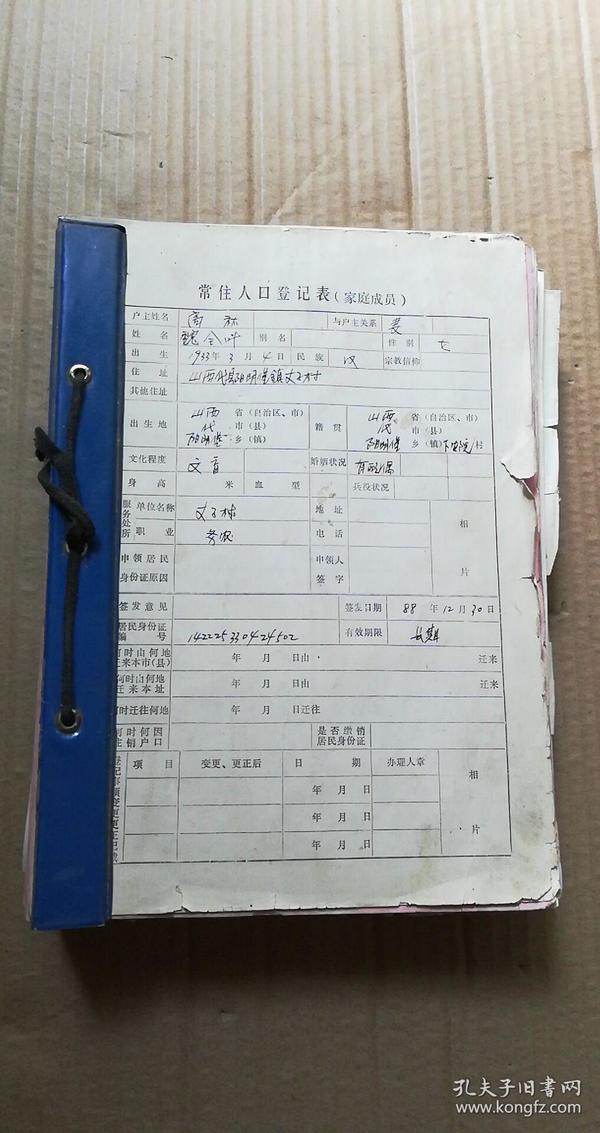 常住人口登记表(家庭成员)
户主姓名 与户主关系 妻
姓名 别名 性别 女
出生 1933年3月4日 民族 汉 宗教信仰
住址 山西代县阳明堡镇 村
其他住址
出生地 山西省(自治区、市) 代市(县) 阳明堡乡(镇) 籍贯 山西省(自治区、市) 代市(县) 阳明堡乡(镇) 村
文化程度 文盲 婚姻状况 有配偶
身高 米 血型 兵役状况
服务处所 单位名称 地址 相片
职业 务农 电话
申领居民身份证原因 申领人签字
签发意见 签发日期 88年12月30日
居民身份证编号 142225330424502 有效期限 长期
何时由何地迁来本市(县) 年 月 日由 迁来
何时由何地迁来本址 年 月 日由 迁来
何时迁往何地 年 月 日迁往
何时何因注销户口 是否缴销居民身份证
登记事项变更更正记载 项目 变更、更正后 日期 办理人章 相片
年 月 日
年 月 日
年 月 日
孔夫子旧书网
www.kongfz.com